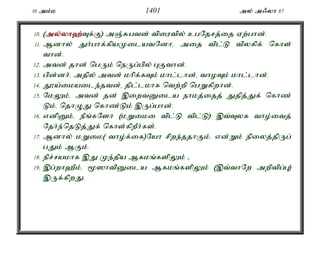 30 அம்ம 1401 அல் அஃலா 87
10. (அல்லாஹ்வுக்கு) அஞ்சுபவன் விரைவில் உபதேசத்தை ஏற்பான்.
11. ஆனால் துர்பாக்கியமுடையவனோ, அதை விட்டு விலகிக் கொள்
வான்.
12. அவன் தான் பெரும் நெருப்பில் புகுவான்.
13. பின்னர், அதில் அவன் மரிக்கவும் மாட்டான், வாழவும் மாட்டான்.
14. தூய்மையடைந்தவன், திட்டமாக வெற்றி பெறுகிறான்.
15. மேலும், அவன் தன் இறைவனுடைய நாமத்தைத் துதித்துக் கொண்
டும், தொழுது கொண்டும் இருப்பான்.
16. எனினும், நீங்களோ (மறுமை விட்டு விட்டு) இவ்வுலக வாழ்வைத்
தேர்ந்தெடுத்துக் கொள்கிறீர்கள்.
17. ஆனால் மறுமை( வாழ்க்கை)யோ சிறந்ததாகும், என்றும் நிலைத்திருப்
பதும் ஆகும்.
18. நிச்சயமாக இது முந்திய ஆகமங்களிலும் ,
19. இப்றாஹீம், மூஸாவினுடைய ஆகமங்களிலும் (இவ்வாறே அறிவிப்பு)
இருக்கிறது.